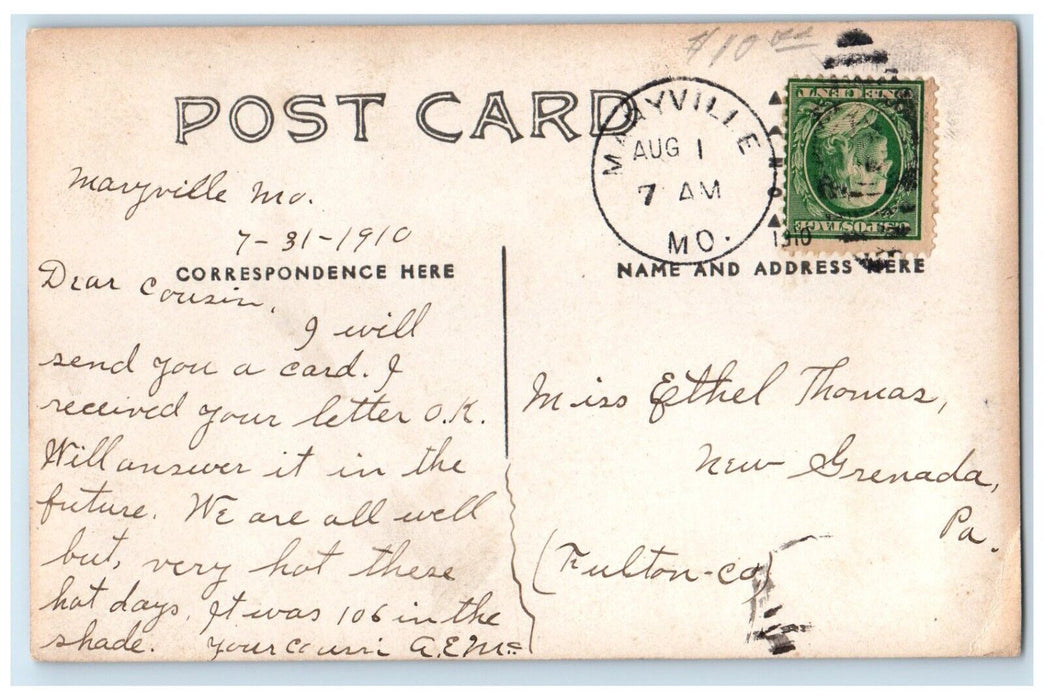 $10.00
POST CARD
MARYVILLE
AUG 1
7 AM
MO.
1910
ONE CENT
U.S. POSTAGE
Maryville Mo.
7-31-1910
CORRESPONDENCE HERE
Dear Cousin,
I will
send you a card. I
received your letter O.K.
Will answer it in the
future. We are all well
but, very hot these
hot days. It was 106 in the
shade. your cousin A.E.Mc
NAME AND ADDRESS HERE
Miss Ethel Thomas,
New Grenada,
Pa.
(Fulton-co)